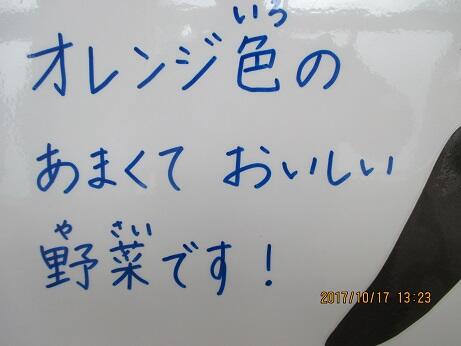 いろ
オレンジ色の
あまくて おいしい
や さい
野菜です！
2017/10/17 13:23